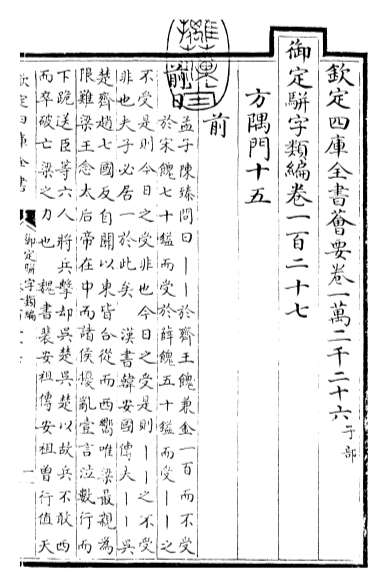 欽定四庫全書薈要卷一萬二千二十六子部
御定駢字類編卷一百二十七
方隅門十五
前
前日
孟子陳臻問曰丨丨於齊王餽兼金一百而不受
於宋餽七十鎰而受於薛餽五十鎰而受丨丨之
不受是則今日之受非也今日之受是則丨丨之不受
非也夫子必居一於此矣 漢書韓安國傳夫丨丨吳
楚齊趙七國反自關以東皆合從而西嚮唯梁最親為
限難梁王念太后帝在中而諸侯擾亂壹言泣數行而
下跪送臣等六人將兵擊却吳楚吳楚以故兵不敢西
而卒破亡梁之力也 魏書裴安祖傳安祖曾行值天
欽定四庫全書
御定駢字類編